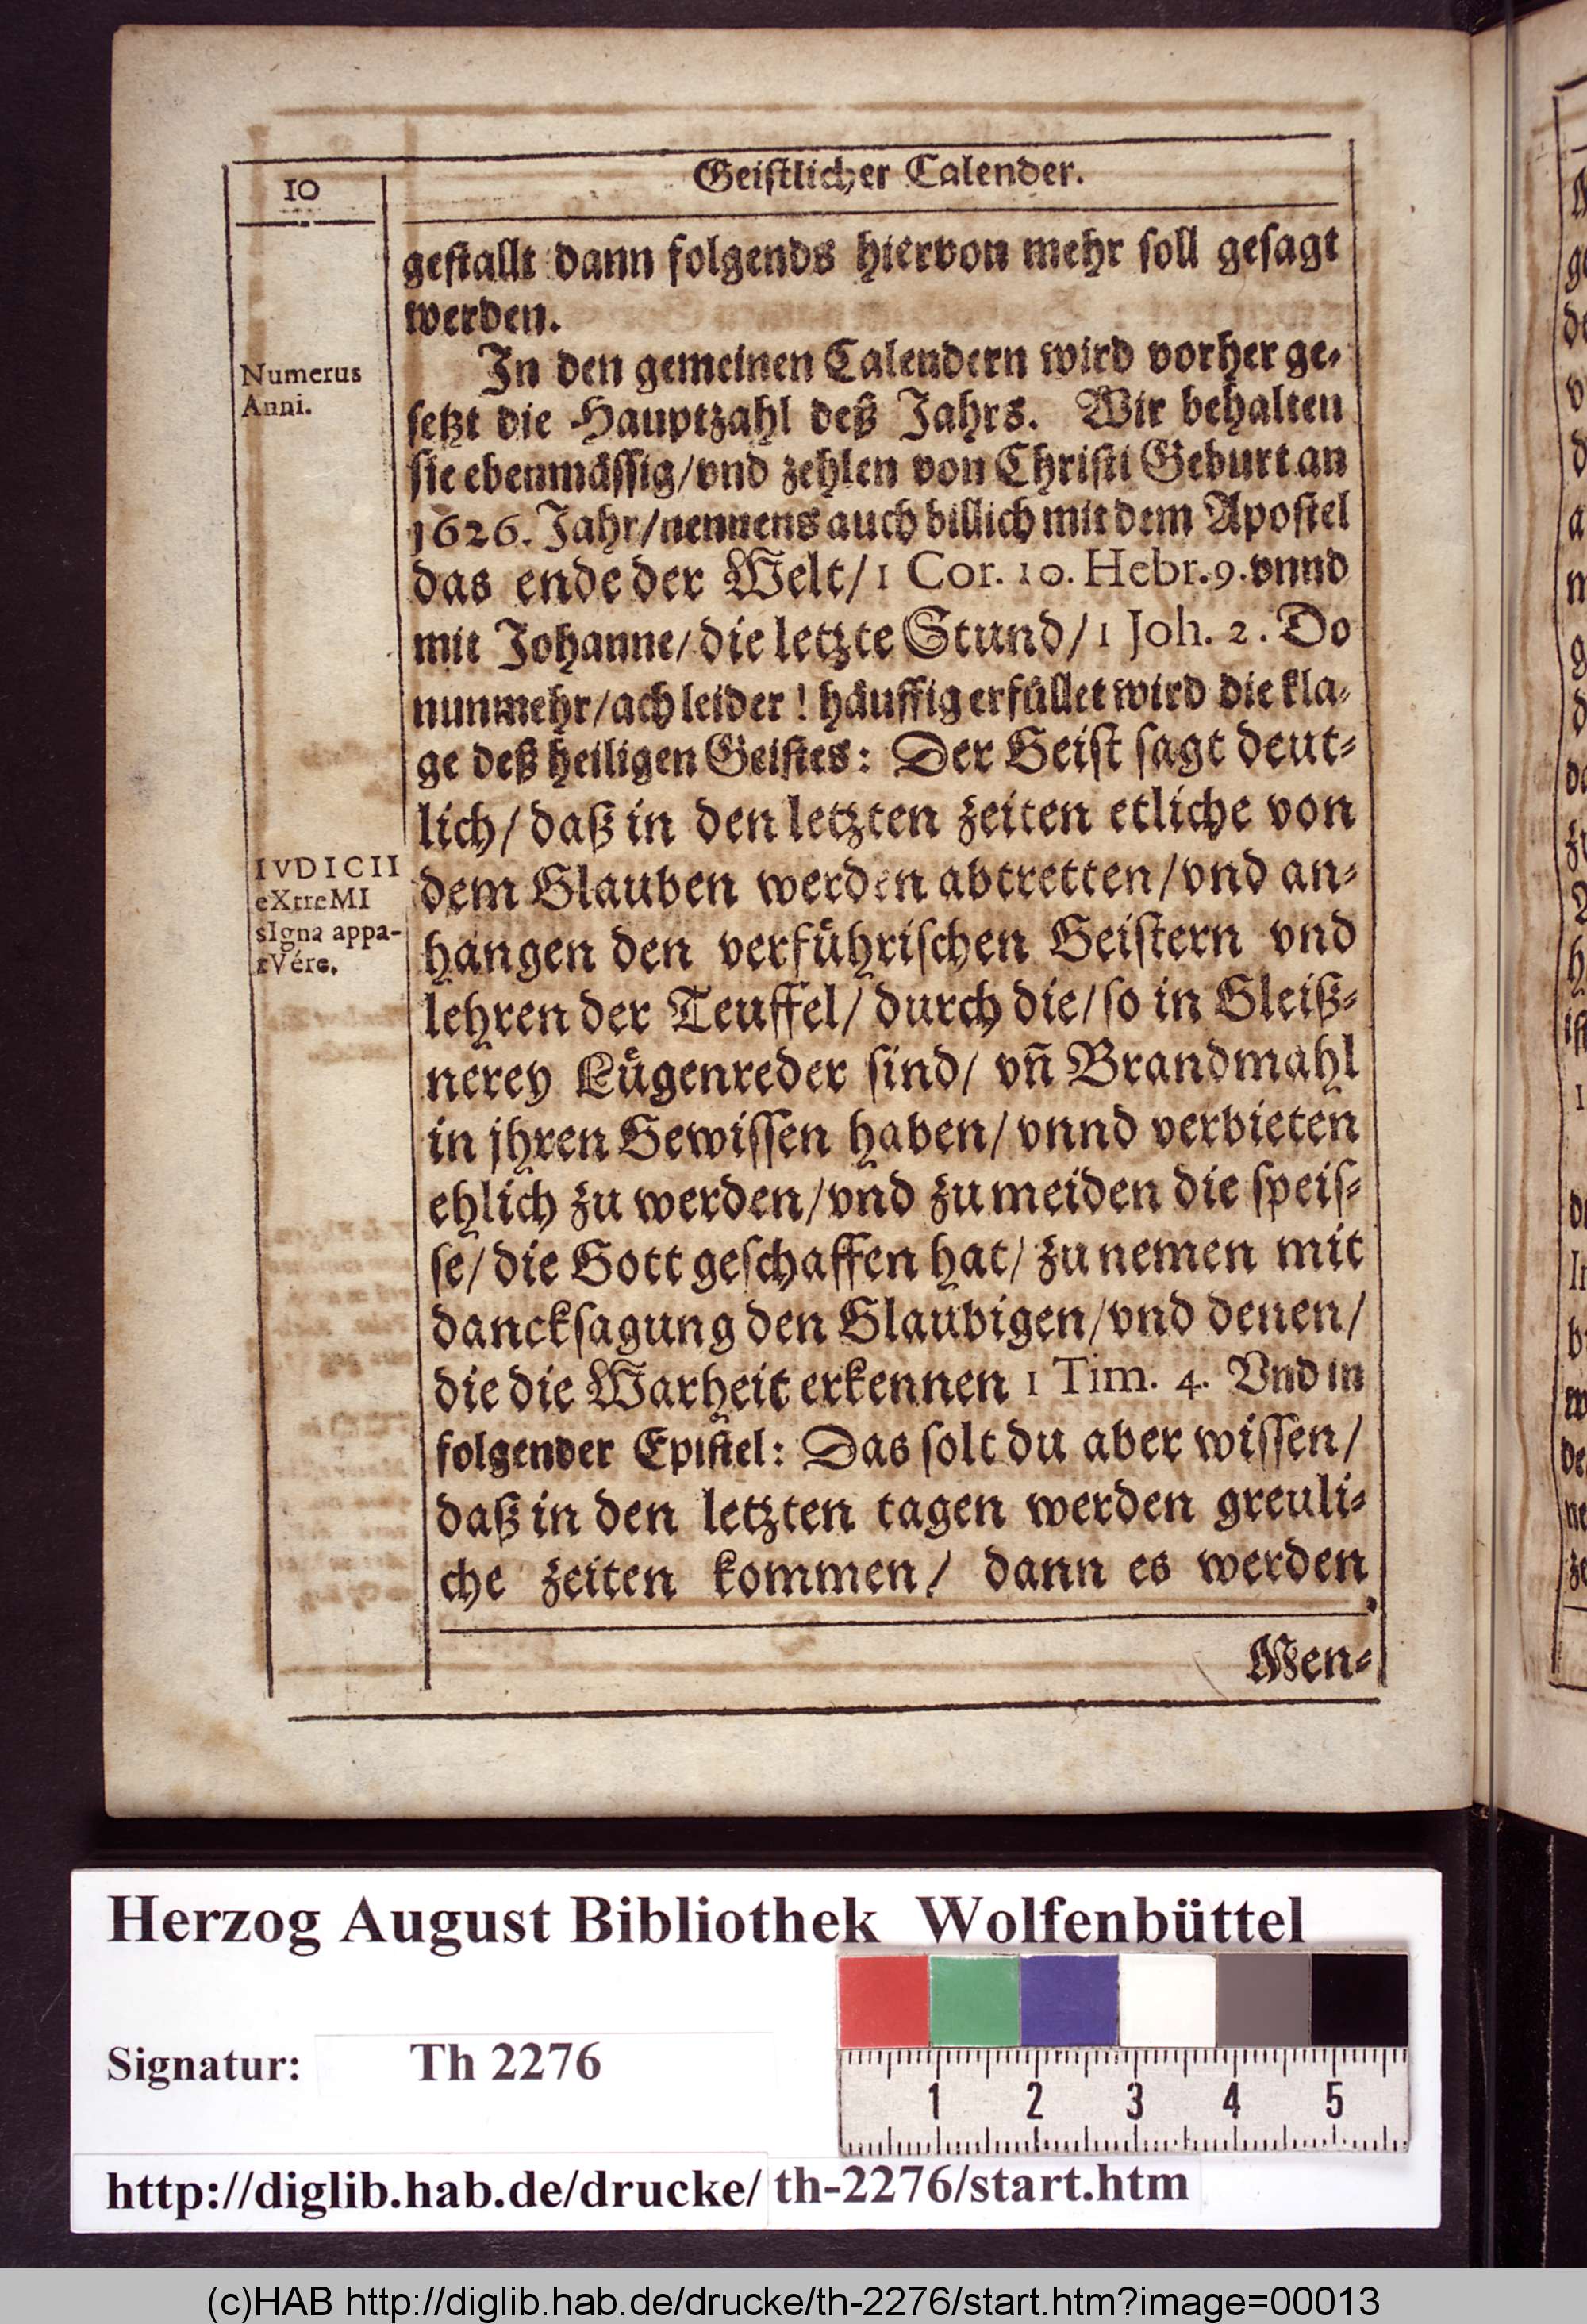 10
Geistlicher Calender.
gestallt dann folgends hiervon mehr soll gesagt
werden.
Numerus
Anni.
In den gemeinen Calendern wird vorher ge-
setzt die Hauptzahl deß Jahrs. Wir behalten
sie ebenmässig/vnd zehlen von Christi Geburt an
1626. Jahr/nennens auch billich mit dem Apostel
das ende der Welt/1 Cor. 10. Hebr. 9. vnnd
mit Johanne/die letzte Stund/1 Joh. 2. Do
nunmehr/ach leider! häuffig erfüllet wird die kla-
ge deß heiligen Geistes: Der Geist sagt deut-
lich/daß in den letzten zeiten etliche von
IVDICII
eXtreMI
sIgna appa-
rVére.
dem Glauben werden abtretten/vnd an-
hangen den verführischen Geistern vnd
lehren der Teuffel/durch die/so in Gleiß-
nerey Lügenreder sind/vñ Brandmahl
in jhren Gewissen haben/vnnd verbieten
ehlich zu werden/vnd zu meiden die speis-
se/die Gott geschaffen hat/zu nemen mit
dancksagung den Glaubigen/vnd denen/
die die Warheit erkennen 1 Tim. 4. Vnd in
folgender Epistel: Das solt du aber wissen/
daß in den letzten tagen werden greuli-
che zeiten kommen/dann es werden
Men-
Herzog August Bibliothek Wolfenbüttel
Signatur: Th 2276
1 2 3 4 5
http://diglib.hab.de/drucke/th-2276/start.htm
(c)HAB http://diglib.hab.de/drucke/th-2276/start.htm?image=00013